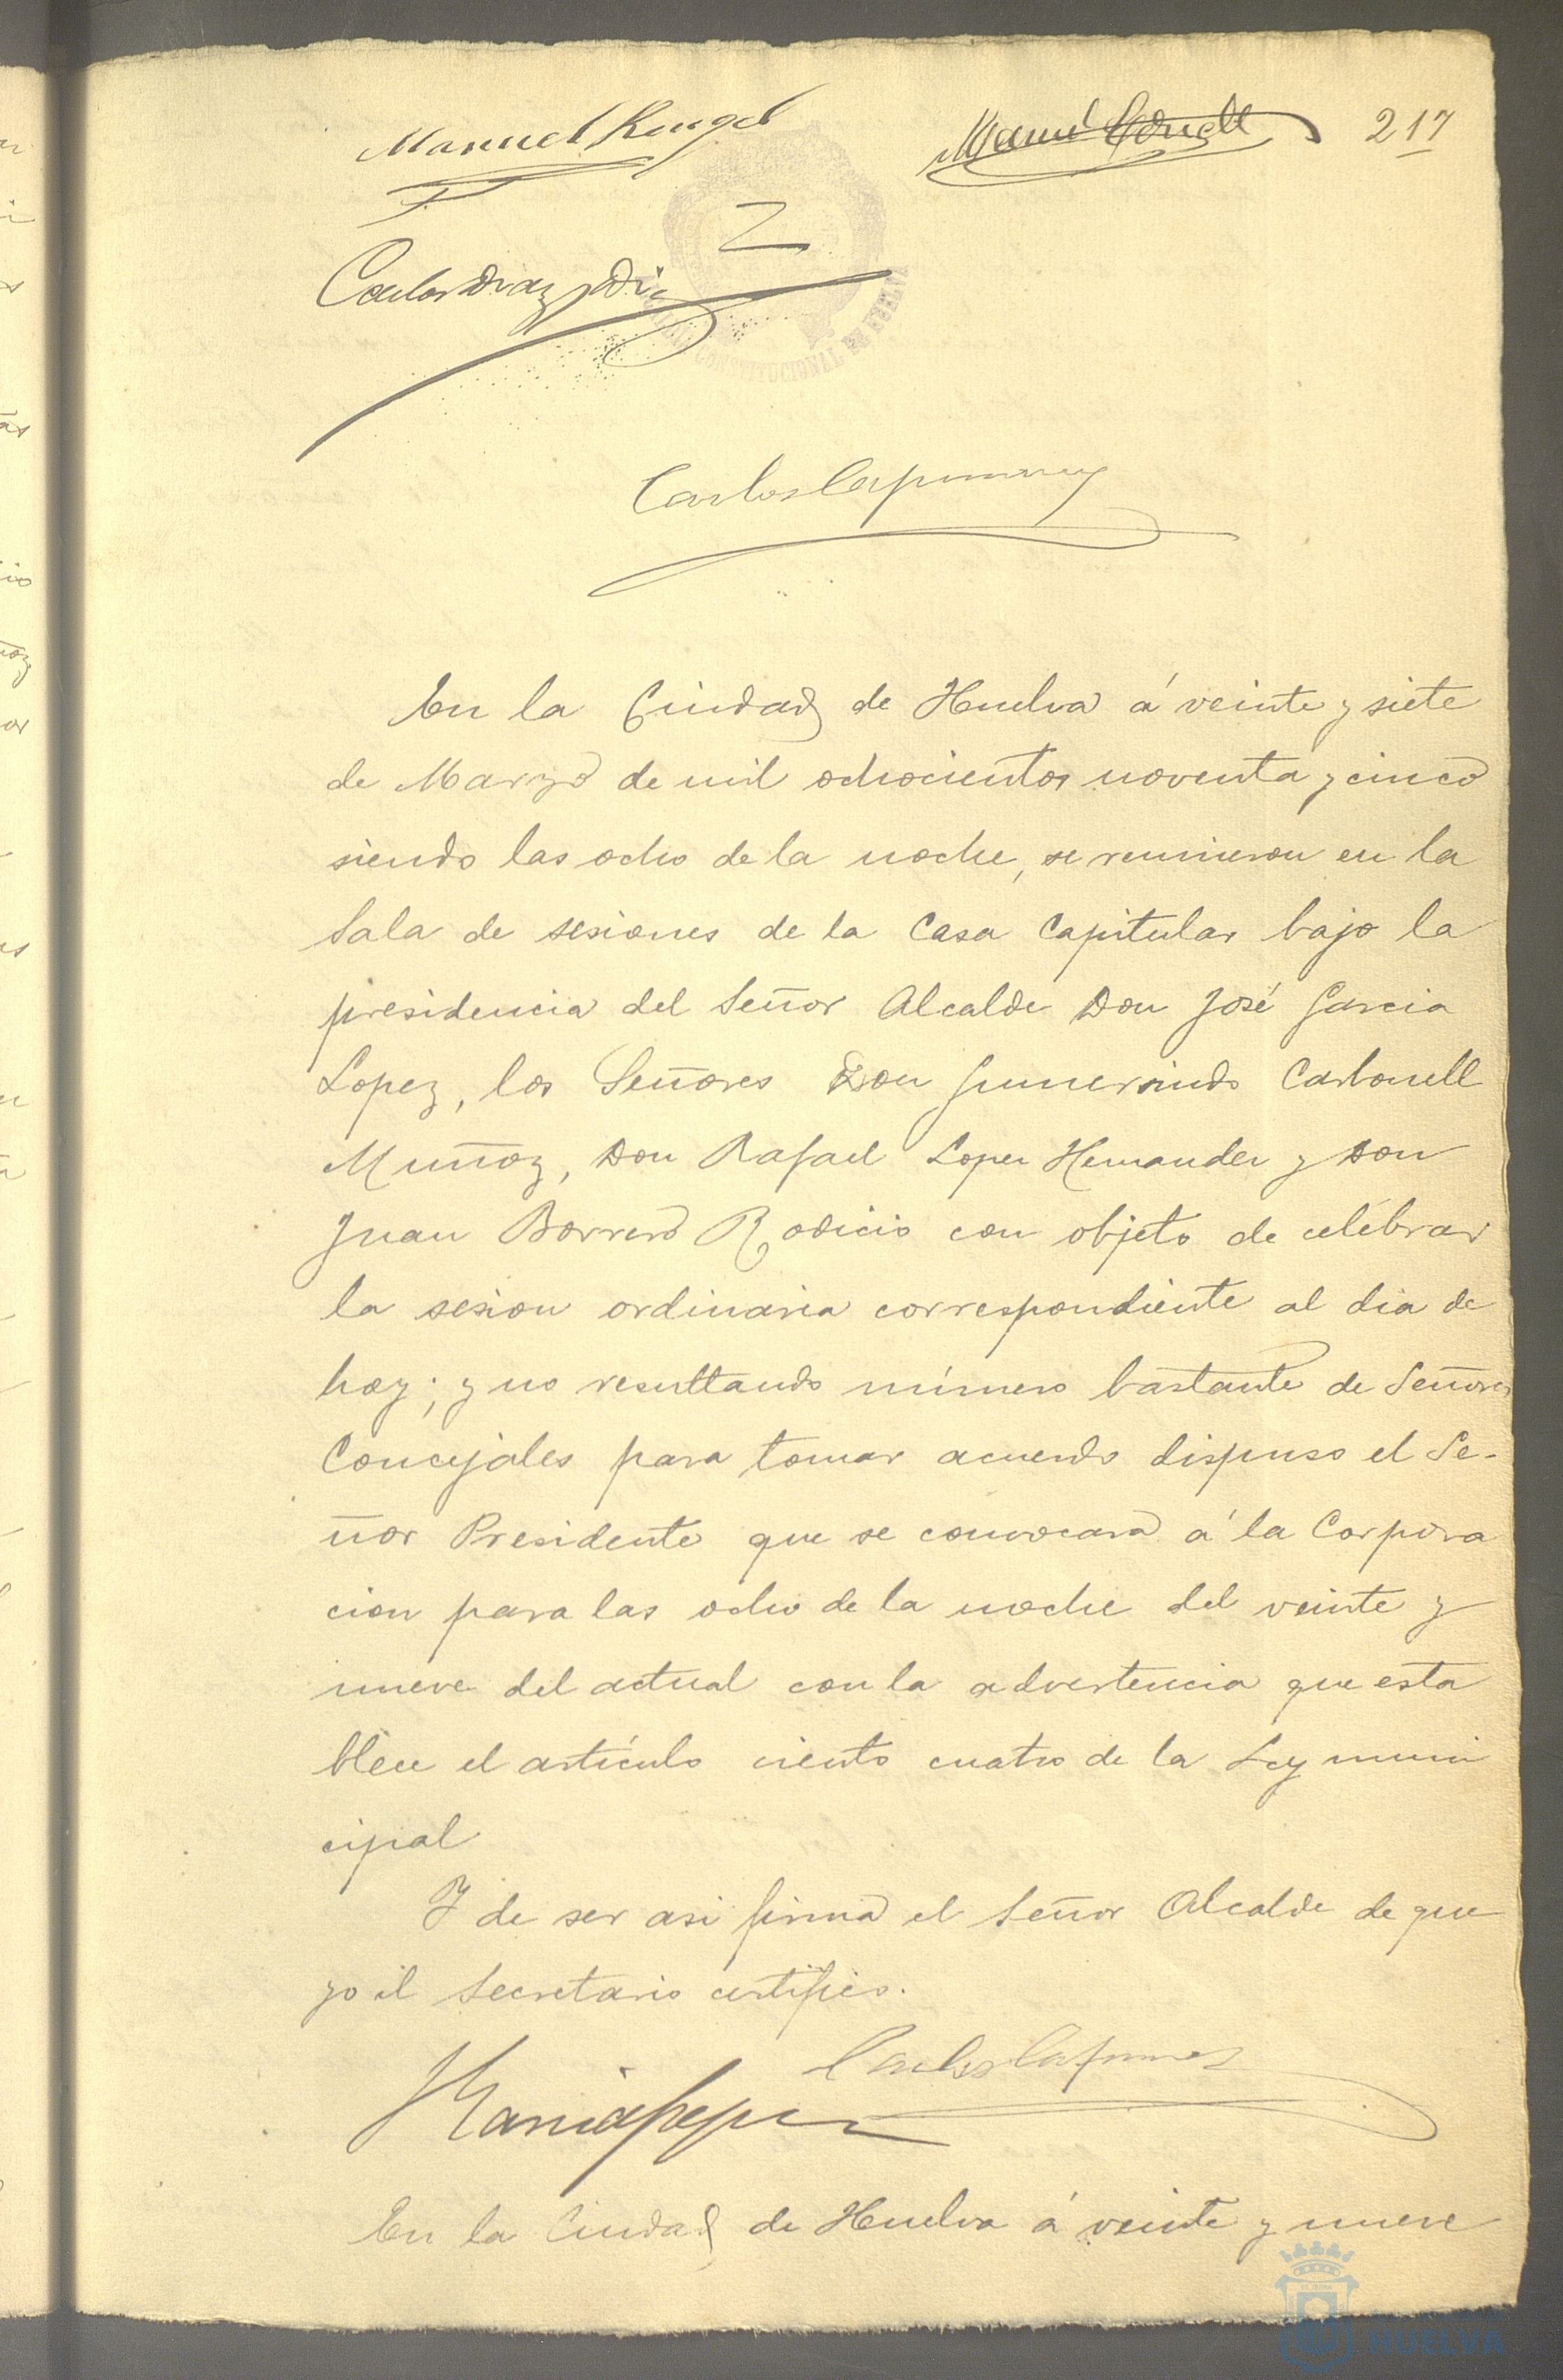 Manuel Rengel
217
Carlos Diaz y Di
CONSTITUCIONAL DE HUELVA
Carlos
En la Ciudad de Huelva á veinte y siete
de Marzo de mil ochocientos noventa y cinco
siendo las ocho de la noche, se reunieron en la
Sala de sesiones de la Casa Capitular bajo la
presidencia del Señor Alcalde Don José Garcia
Lopez, los Señores Don Gumersindo Carbonell
Muñoz, Don Rafael Lopez Hernandez y Don
Juan Borrero Rodicio con objeto de celebrar
la sesion ordinaria correspondiente al dia de
hoy; y no resultando número bastante de Señores
Concejales para tomar acuerdo dispuso el Se-
ñor Presidente que se convocara á la Corpora
cion para las ocho de la noche del veinte y
nueve del actual con la advertencia que esta
blece el artículo ciento cuatro de la Ley muni
cipal
Y de ser asi firma el Señor Alcalde de que
yo el Secretario certifico.
Carlos
En la Ciudad de Huelva á veinte y nueve
HUELVA